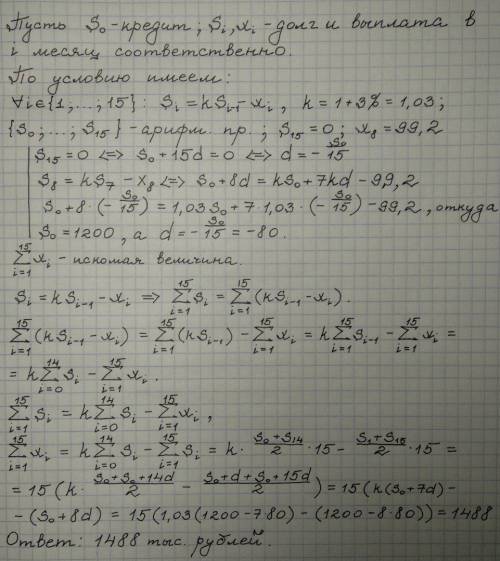 Пусть S₀ - кредит ; Sᵢ, xᵢ - долг и выплата в
i месяц соответственно.
По условию имеем:
∀i∈{1,…,15} : Sᵢ = kSᵢ₋₁ - xᵢ , k = 1+3% = 1,03 ;
{S₀ ; … ; S₁₅} - арифм. пр. ; S₁₅ = 0 ; x₈ = 99,2
S₁₅ = 0 <=> S₀ + 15d = 0 <=> d = - S₀/15
S₈ = kS₇ - x₈ <=> S₀ + 8d = kS₀ + 7kd - 99,2
S₀ + 8·(- S₀/15) = 1,03S₀ + 7·1,03·(- S₀/15) - 99,2 , откуда
S₀ = 1200 , а d = - S₀/15 = -80.
∑ᵢ₌₁¹⁵ xᵢ - искомая величина.
Sᵢ = kSᵢ₋₁ - xᵢ => ∑ᵢ₌₁¹⁵ Sᵢ = ∑ᵢ₌₁¹⁵ (kSᵢ₋₁ - xᵢ) .
∑ᵢ₌₁¹⁵ (kSᵢ₋₁ - xᵢ) = ∑ᵢ₌₁¹⁵ (kSᵢ₋₁) - ∑ᵢ₌₁¹⁵ xᵢ = k∑ᵢ₌₁¹⁵ Sᵢ₋₁ - ∑ᵢ₌₁¹⁵ xᵢ =
= k∑ᵢ₌₀¹⁴ Sᵢ - ∑ᵢ₌₁¹⁵ xᵢ .
∑ᵢ₌₁¹⁵ Sᵢ = k∑ᵢ₌₀¹⁴ Sᵢ - ∑ᵢ₌₁¹⁵ xᵢ ,
∑ᵢ₌₁¹⁵ xᵢ = k∑ᵢ₌₀¹⁴ Sᵢ - ∑ᵢ₌₁¹⁵ Sᵢ = k· (S₀+S₁₄)/2 ·15 - (S₁+S₁₅)/2 ·15 =
= 15(k· (S₀+S₀+14d)/2 - (S₀+d+S₀+15d)/2 ) = 15(k(S₀+7d) -
- (S₀+8d) = 15(1,03(1200-7·80) - (1200-8·80)) = 1488
Ответ: 1488 тыс. рублей.